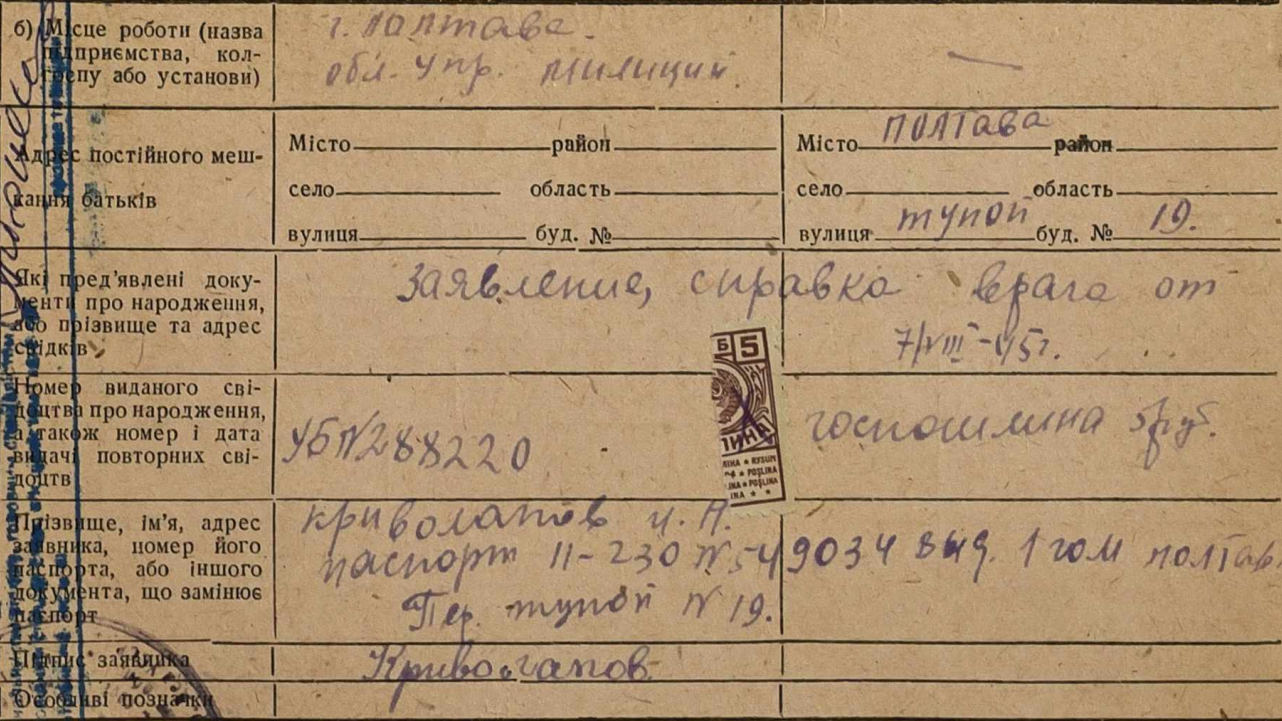 б) Місце роботи (назва
підприємства, кол-
госпу або установи)
г. Полтава.
обл. упр. милиции
—
Адрес постійного меш-
кання батьків
Місто район
село область
вулиця буд. №
Місто Полтава район
село область
вулиця тупой буд. № 19.
Які пред'явлені доку-
менти про народження,
або прізвище та адрес
свідків
Заявление, справка врага от
7/VIII-45г.
Б 5
Номер виданого сві-
доцтва про народження,
а також номер і дата
видачі повторних сві-
доцтв
УБ№288220
госпошлина 5руб.
ШИНА
ИНА ★ RYSUM
★ POSLINA
INA ★ POSLINA
INA ★ ★
Прізвище, ім'я, адрес
заявника, номер його
паспорта, або іншого
документа, що замінює
паспорт
Криволапов И. Н.
паспорт II-230 №549034 выд. 1 гом Полтав
Пер. тупой № 19.
Підпис заявника
Криволапов
Особливі позначки